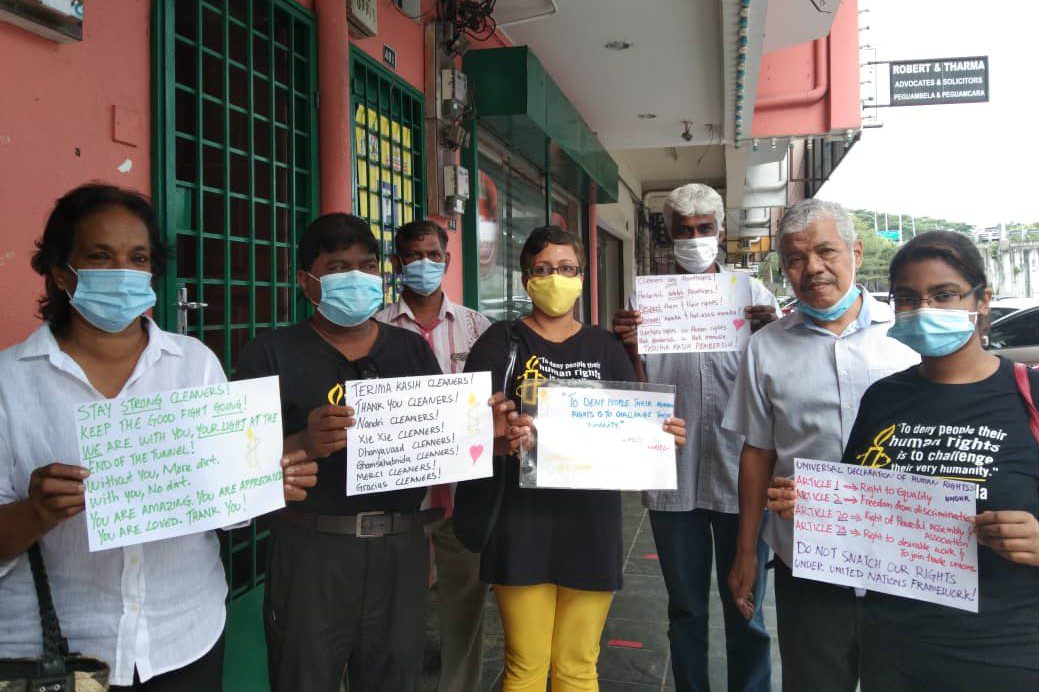 ROBERT & THARMA
ADVOCATES & SOLICITORS
PEGUAMBELA & PEGUAMCARA
STAY STRONG CLEANERS!
KEEP THE GOOD FIGHT GOING!
WE ARE WITH YOU, YOUR LIGHT AT THE
END OF THE TUNNEL!
Without YOU, More dirt.
With you, No dirt.
YOU ARE AMAZING. YOU ARE APPRECIATED
YOU ARE LOVED. THANK YOU!
TERIMA KASIH CLEANERS!
THANK YOU CLEANERS!
Nandri CLEANERS!
Xie Xie CLEANERS!
Dhanyavaad CLEANERS!
MERCI CLEANERS!
Gracias CLEANERS!
"To deny people their
human rights
is to challenge
"TO DENY PEOPLE THEIR HUMAN
RIGHTS IS TO CHALLENGE THEIR
HUMANITY."
CLEANERS
their rights!
Workers rights are Human rights
TERIMA KASIH PEMBERSIH
"To deny people their
human rights
is to challenge
their very humanity."
UNIVERSAL DECLARATION OF HUMAN RIGHTS
ARTICLE 1 → Right to Equality
ARTICLE 2 → Freedom from discrimination
ARTICLE 20 → Right of Peaceful Assembly &
Association
ARTICLE 23 → Right to desirable work &
to join trade unions
DO NOT SNATCH OUR RIGHTS
UNDER UNITED NATIONS FRAMEWORK!